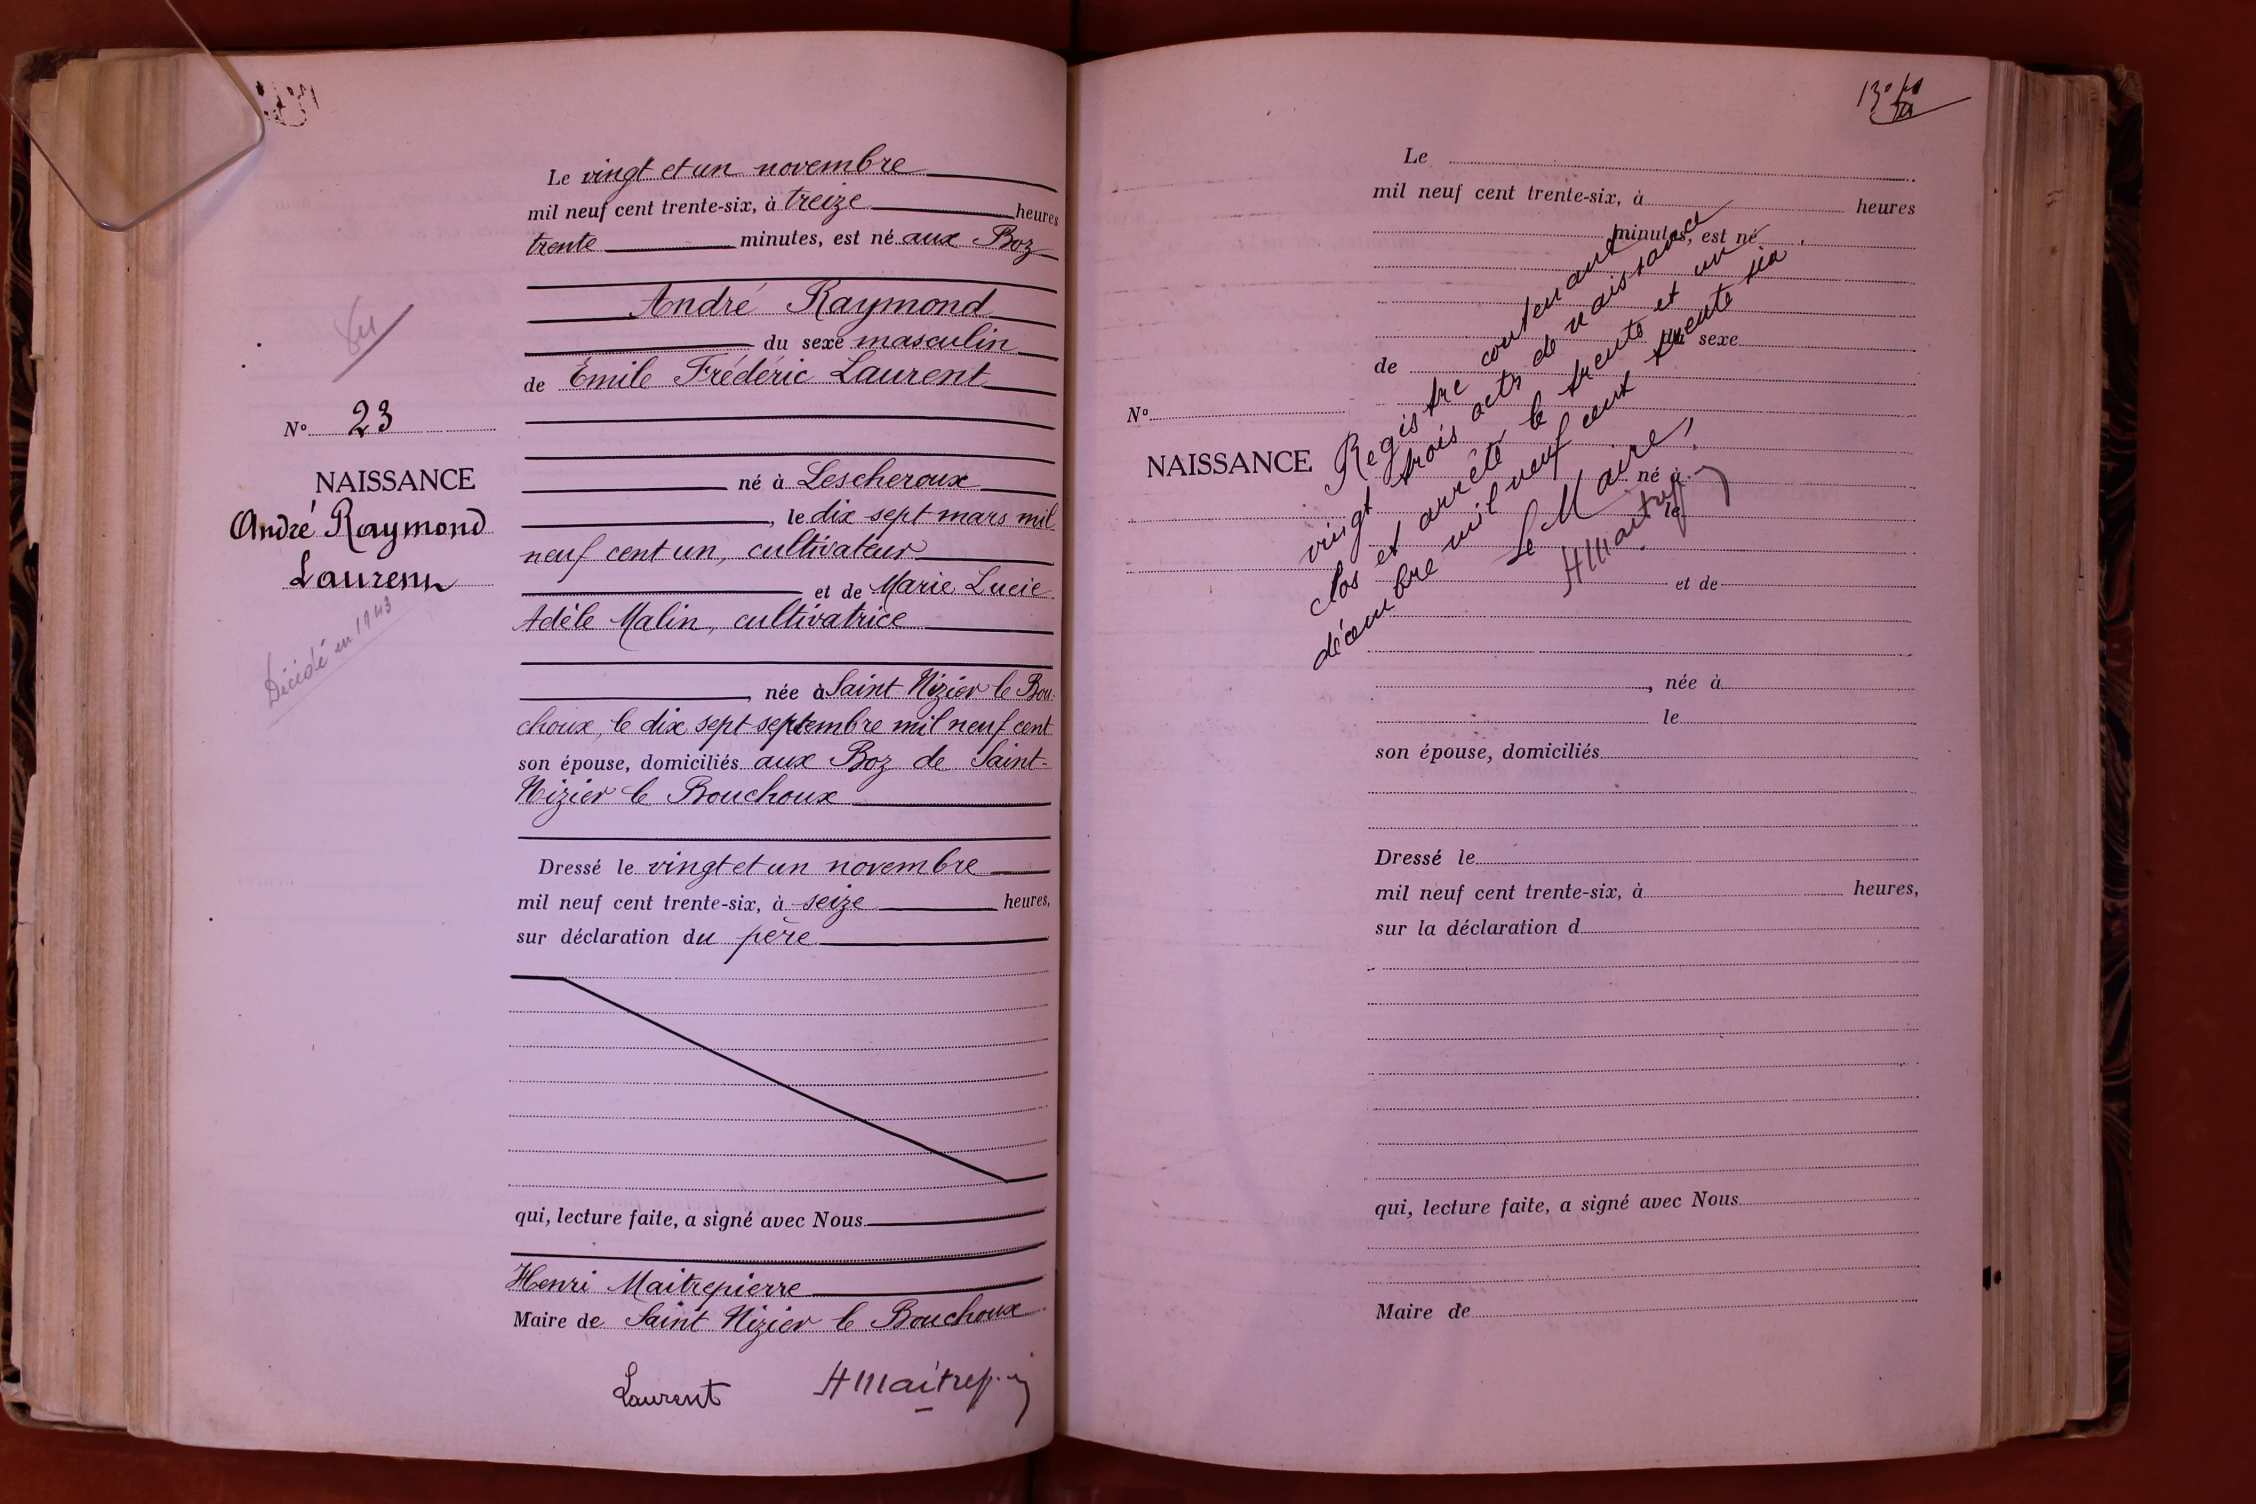 Le vingt et un novembre
mil neuf cent trente-six, à treize heures
trente minutes, est né aux Boz
André Raymond
du sexe masculin
de Emile Frédéric Laurent
né à Lescheroux
, le dix sept mars mil
neuf cent un, cultivateur
et de Marie Lucie
Adèle Malin, cultivatrice
, née à Saint Nizier le Bou-
choux, le dix sept septembre mil neuf cent
son épouse, domiciliés aux Boz de Saint-
Nizier le Bouchoux
Dressé le vingt et un novembre
mil neuf cent trente-six, à seize heures,
sur déclaration du père
qui, lecture faite, a signé avec Nous
Henri Maitrepierre
Maire de Saint Nizier le Bouchoux
Laurent
N° 23
NAISSANCE
André Raymond
Laurent
Décidé en 1943
Le
mil neuf cent trente-six, à heures
minutes, est né
du sexe
de
N°
NAISSANCE
né à
le
et de
, née à
le
son épouse, domiciliés
Dressé le
mil neuf cent trente-six, à heures,
sur la déclaration d
qui, lecture faite, a signé avec Nous
Maire de
Registre contenant
vingt trois acts de naissance
clos et arrêté le trente et un
décembre mil neuf cent trente six
Le Maire,